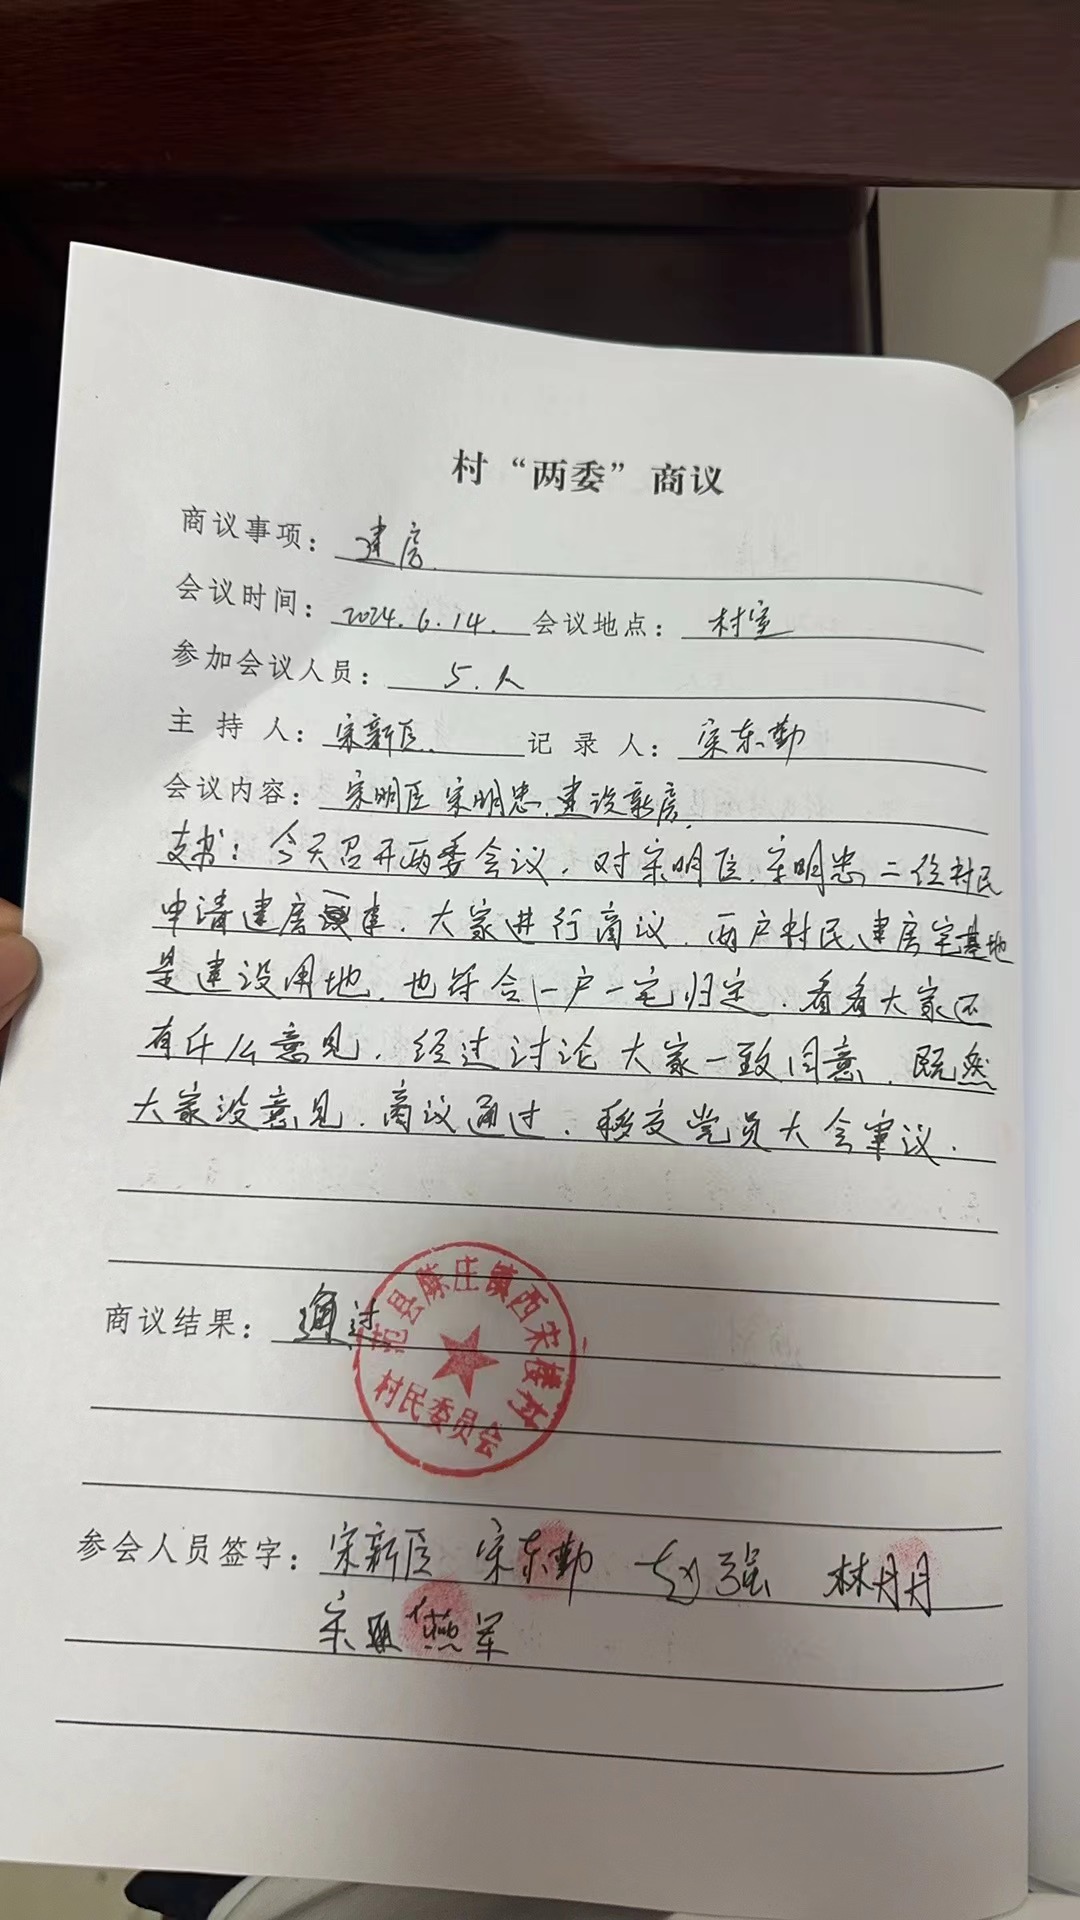 村“两委”商议
商议事项：建房
会议时间：2024.6.14. 会议地点：村室
参加会议人员：5.人
主持人：宋新臣 记录人：宋东勤
会议内容：宋明臣 宋明忠.建设新房.
支书：今天召开两委会议.对宋明臣.宋明忠二位村民
申请建房 建.大家进行商议.两户村民建房宅基地
是建设用地.也符合一户一宅归定.看看大家还
有什么意见.经过讨论大家一致同意.既然
大家没意见.商议通过.移交党员大会审议.
商议结果：通过
范县陈庄镇西宋楼村
村民委员会
参会人员签字：宋新臣 宋东勤 赵强 林丹丹
宋 燕军